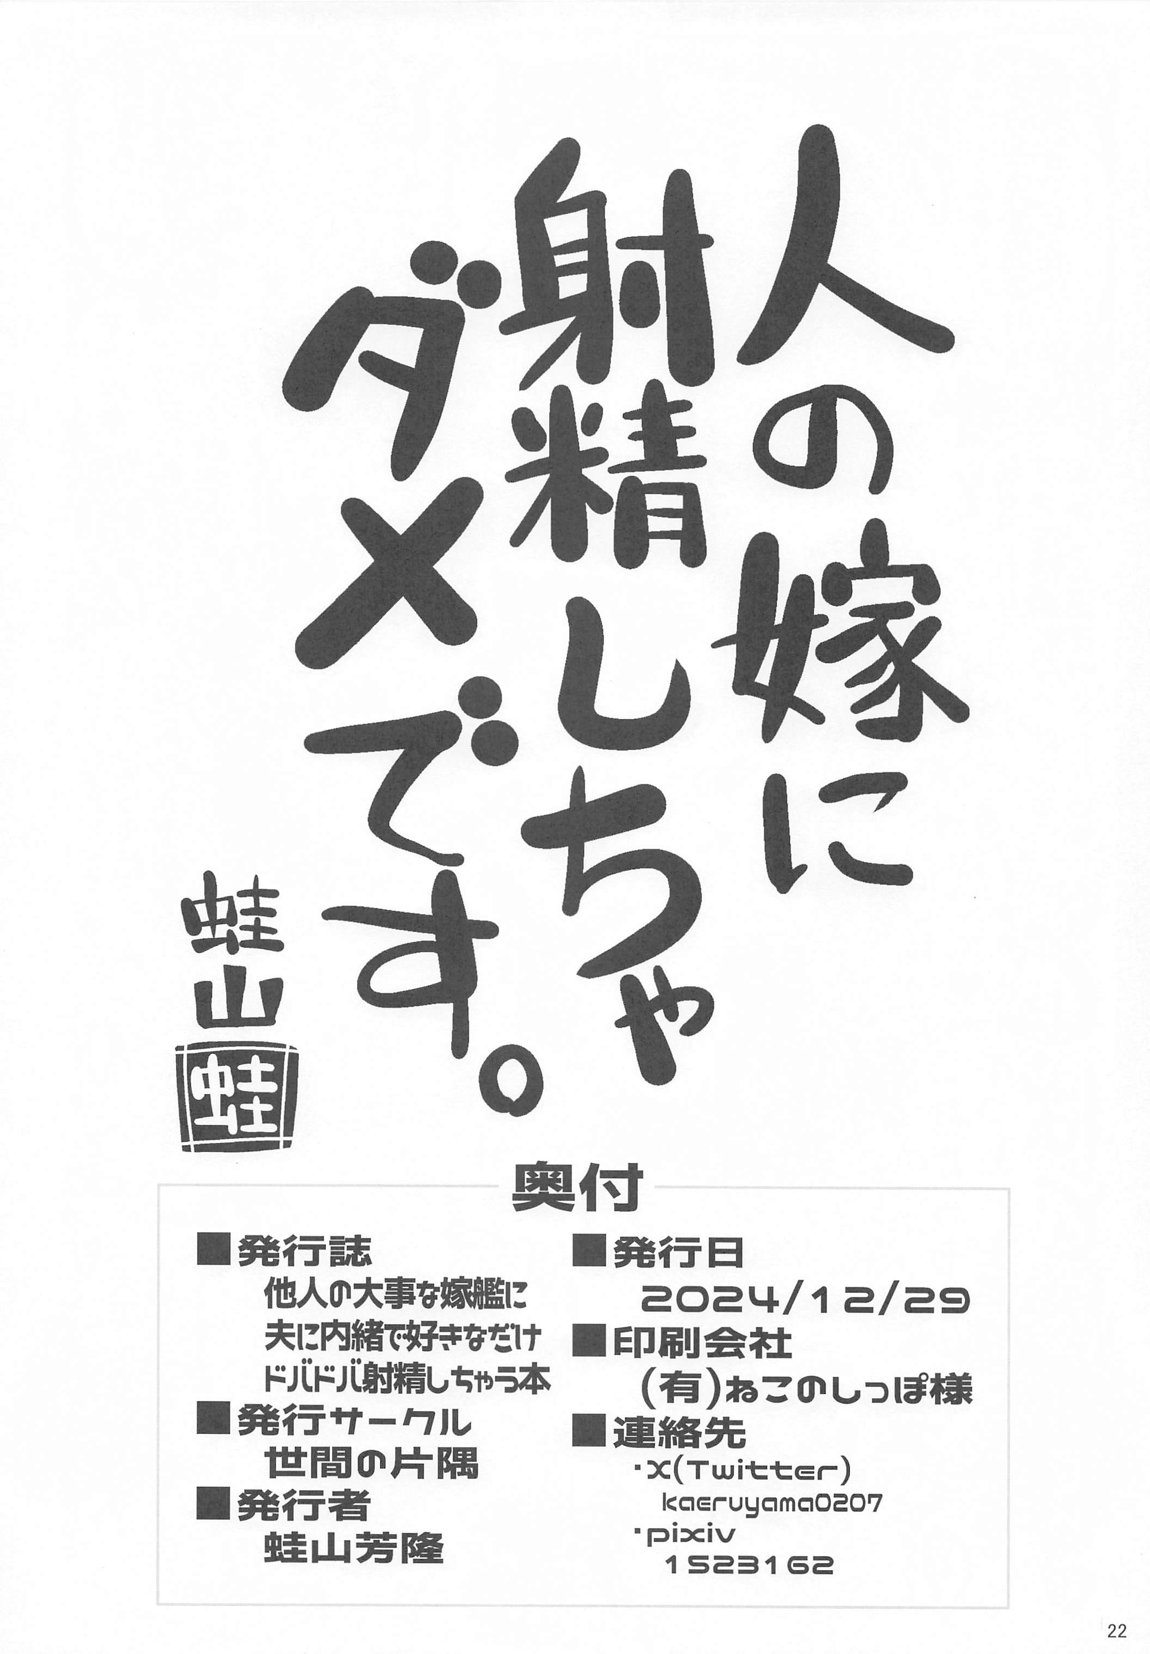 人の嫁に
射精しちゃ
ダメです。
蛙山
蛙
奥付
■発行誌
他人の大事な嫁艦に
夫に内緒で好きなだけ
ドバドバ射精しちゃう本
■発行サークル
世間の片隅
■発行者
蛙山芳隆
■発行日
2024/12/29
■印刷会社
(有)ねこのしっぽ様
■連絡先
・X(Twitter)
kaeruyama0207
・pixiv
1523162
22